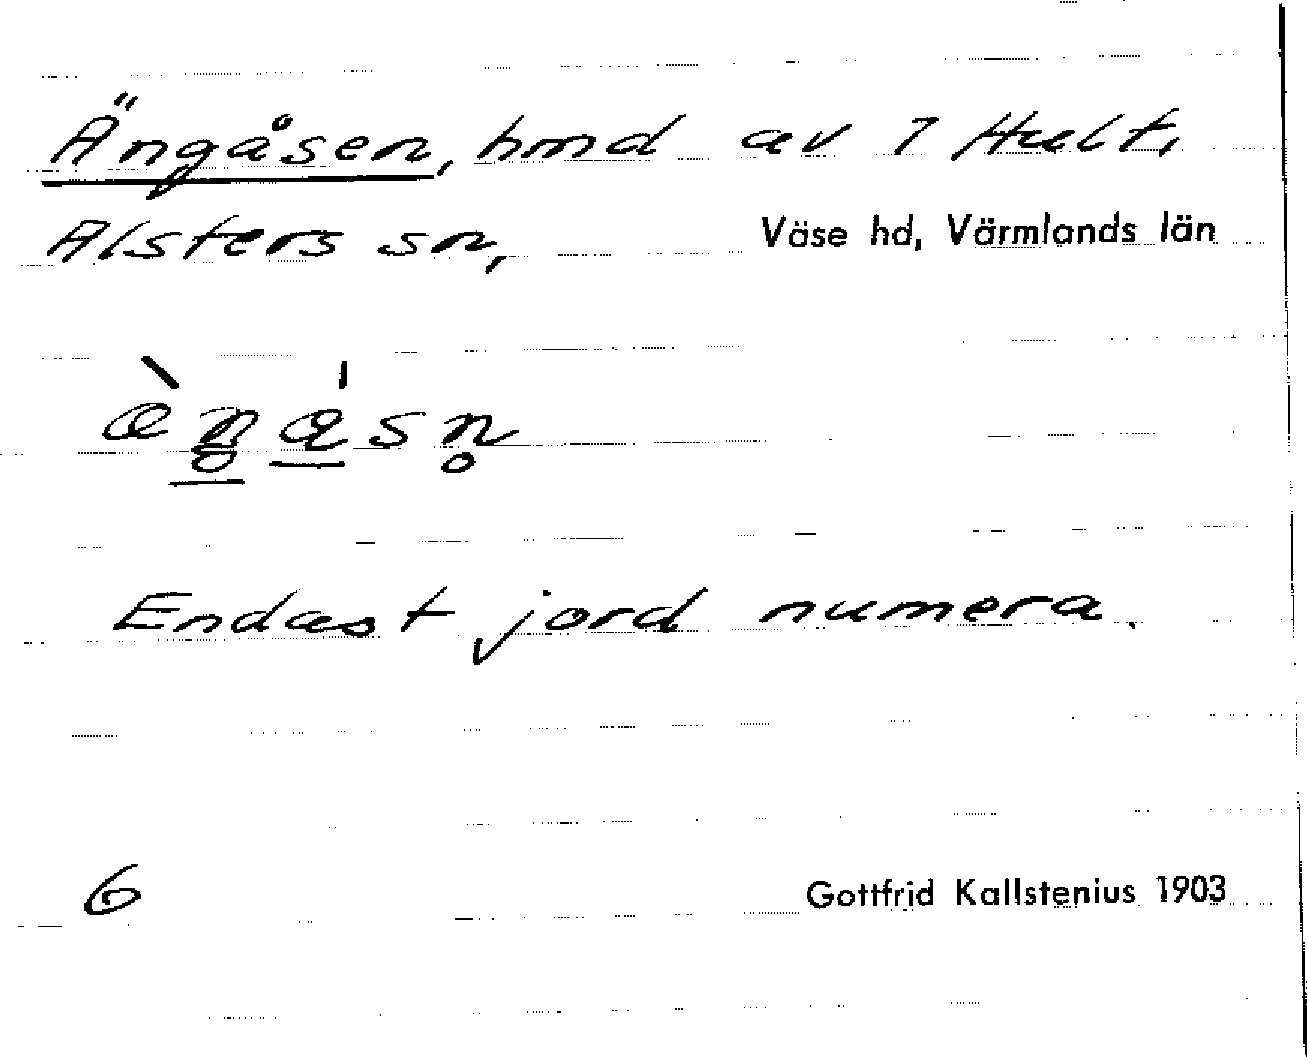 Ängåsen, hmd av 1 Hult,
Alsters sn, Väse hd, Värmlands län
Endast jord numera.
6 Gottfrid Kallstenius 1903